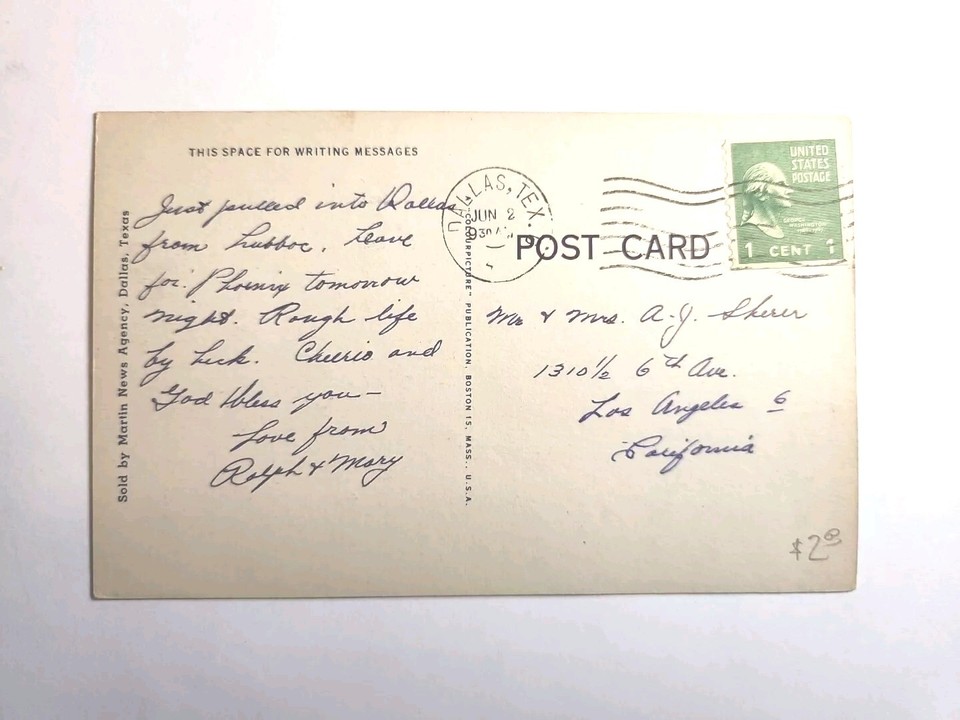 THIS SPACE FOR WRITING MESSAGES
Just pulled into Dallas
from Lubboc. Leave
for Phoenix tomorrow
night. Rough life
by heck. Cheerio and
God bless you—
Love from
Ralph & Mary
Sold by Martin News Agency, Dallas, Texas
"COLOURPICTURE" PUBLICATION, BOSTON 15, MASS., U.S.A.
DALLAS, TEX.
JUN 2
930 AM
POST CARD
UNITED
STATES
POSTAGE
1 CENT 1
Mr & Mrs. A. J. Sherer
1310½ 6th Ave.
Los Angeles 6
California
$2.00